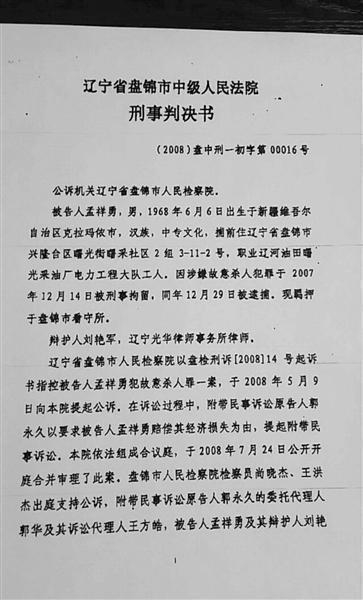 辽宁省盘锦市中级人民法院
刑事判决书
(2008)盘中刑一初字第00016号
公诉机关辽宁省盘锦市人民检察院。
被告人孟祥勇,男,1968年6月6日出生于新疆维吾尔
自治区克拉玛依市,汉族,中专文化,捕前住辽宁省盘锦市
兴隆台区曙光街曙采社区2组3-11-2号,职业辽河油田曙
光采油厂电力工程大队工人。因涉嫌故意杀人犯罪于2007
年12月14日被刑事拘留,同年12月29日被逮捕。现羁押
于盘锦市看守所。
辩护人刘艳军,辽宁光华律师事务所律师。
辽宁省盘锦市人民检察院以盘检刑诉[2008]14号起诉
书指控被告人孟祥勇犯故意杀人罪一案,于2008年5月9
日向本院提起公诉。在诉讼过程中,附带民事诉讼原告人郭
永久以要求被告人孟祥勇赔偿其经济损失为由,提起附带民
事诉讼。本院依法组成合议庭,于2008年7月24日公开开
庭合并审理了此案。盘锦市人民检察院检察员尚晓杰、王洪
杰出庭支持公诉,附带民事诉讼原告人郭永久的委托代理人
郭华及其诉讼代理人王方皓,被告人孟祥勇及其辩护人刘艳
1